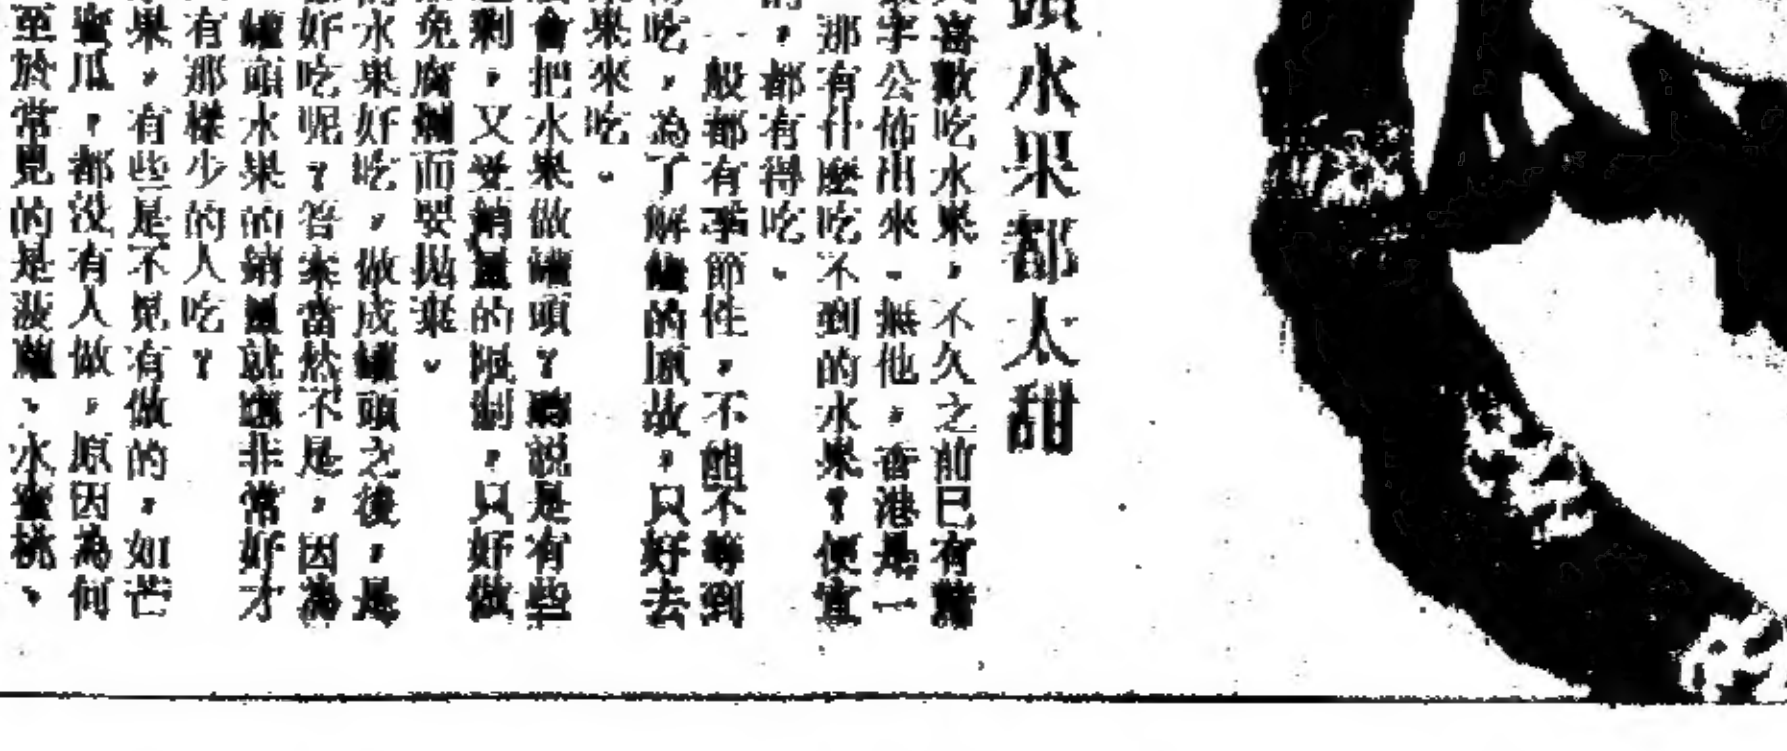 頭水果都太甜
喜歡吃水果，不久之前已有
字公佈出來。無他，香港是一
那有什麼吃不到的水果？便宜
的，都有得吃。
一般都有季節性，不能不等到
吃，為了解饞的原故，只好去
果來吃。
會把水果做罐頭？聽説是有些
剩，又受銷量的限制，只好做
免腐爛而要拋棄。
水果好吃，做成罐頭之後，是
好吃呢？答案當然不是，因為
罐頭水果的銷量就應非常好才
有那樣少的人吃？
果，有些是不見有做的，如芒
蜜瓜，都没有人做，原因為何
至於常見的是菠蘿、水蜜桃、